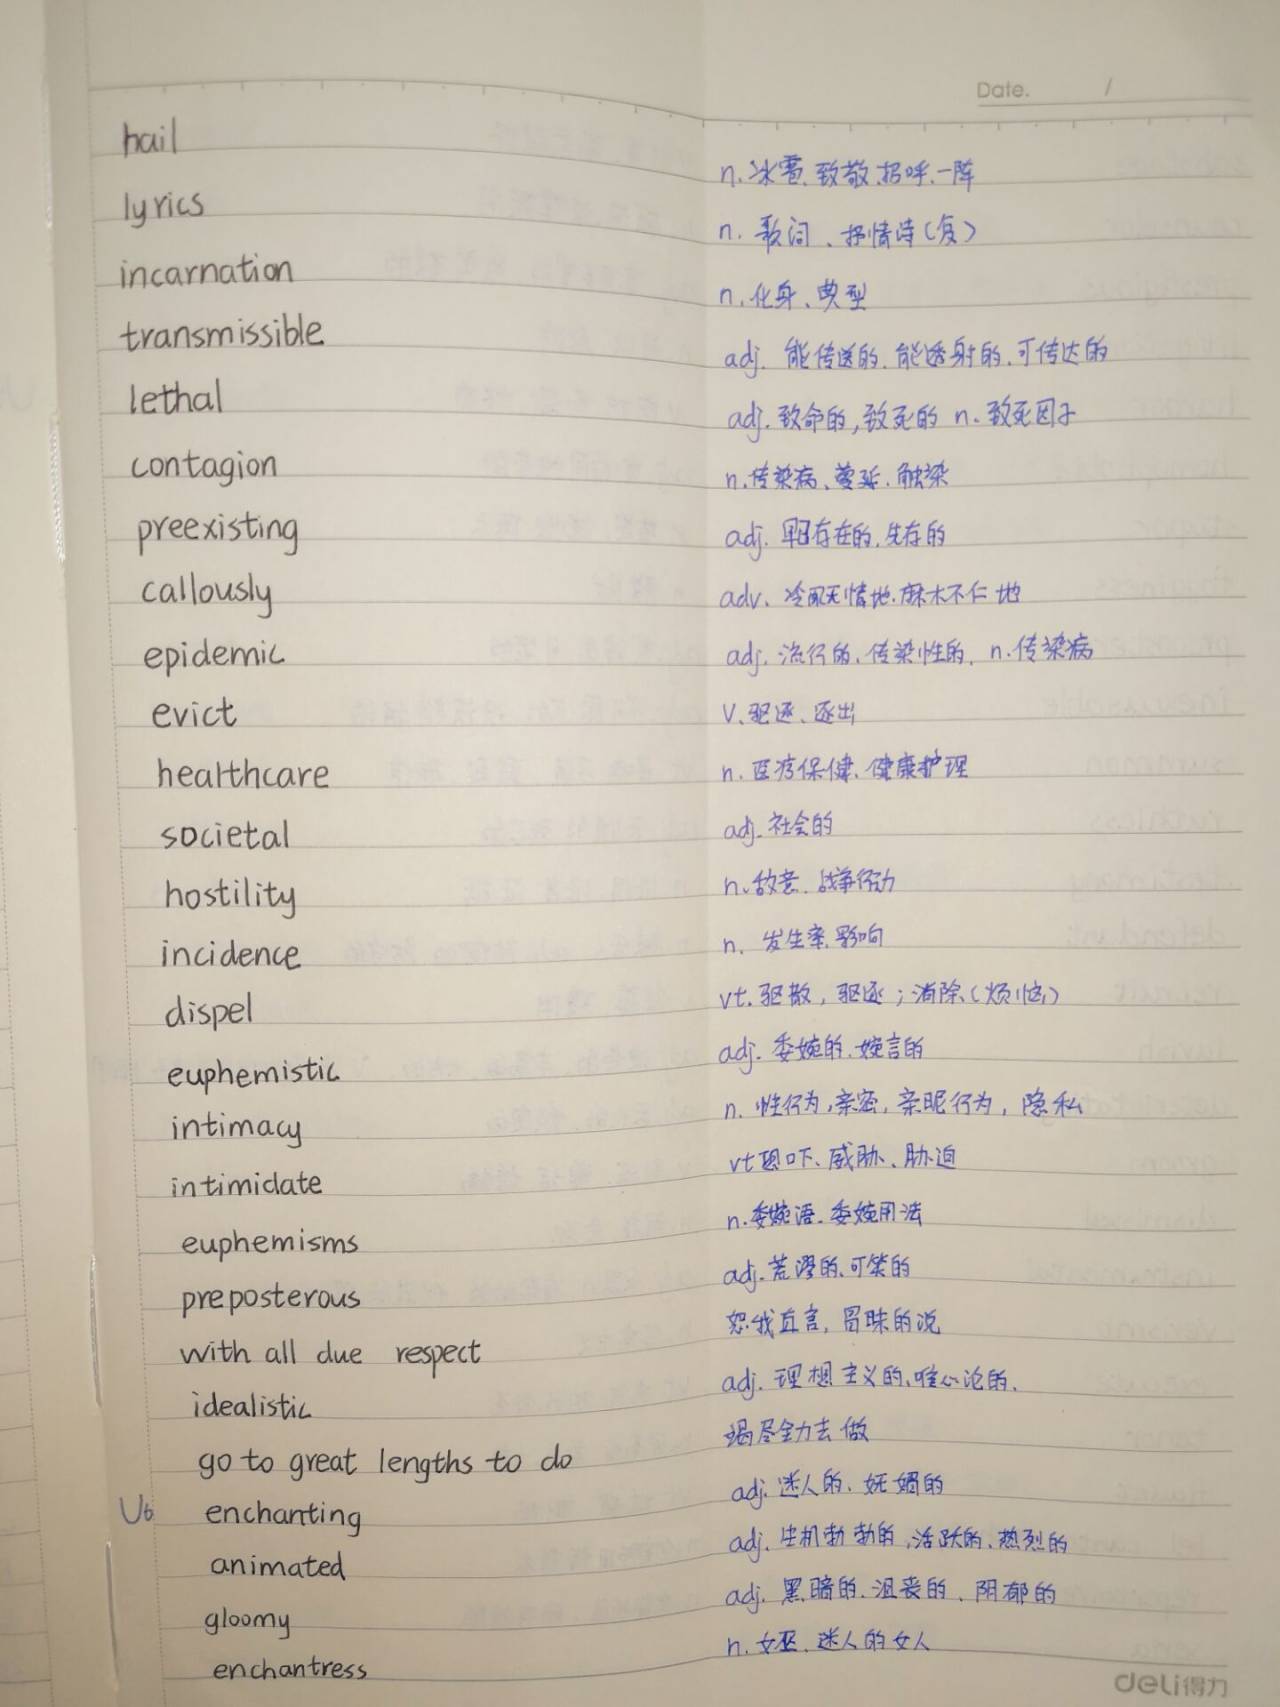 Date. /
hail n. 冰雹、致敬、招呼、一阵
lyrics n. 歌词、抒情诗(复)
incarnation n. 化身、典型
transmissible adj. 能传送的、能透射的、可传达的
lethal adj. 致命的,致死的 n. 致死因子
contagion n. 传染病、蔓延、触染
preexisting adj. 早已存在的、先存的
callously adv. 冷酷无情地、麻木不仁地
epidemic adj. 流行的、传染性的、n. 传染病
evict v. 驱逐、逐出
healthcare n. 医疗保健、健康护理
societal adj. 社会的
hostility n. 敌意、战争行动
incidence n. 发生率、影响
dispel vt. 驱散,驱逐;消除(烦恼)
euphemistic adj. 委婉的、婉言的
intimacy n. 性行为,亲密,亲昵行为,隐私
intimidate vt 恐吓、威胁、胁迫
euphemisms n. 委婉语、委婉用法
preposterous adj. 荒谬的、可笑的
with all due respect 恕我直言,冒昧的说
idealistic adj. 理想主义的、唯心论的、
go to great lengths to do 竭尽全力去做
U6 enchanting adj. 迷人的、妩媚的
animated adj. 生机勃勃的、活跃的、热烈的
gloomy adj. 黑暗的、沮丧的、阴郁的
enchantress n. 女巫、迷人的女人
deli得力